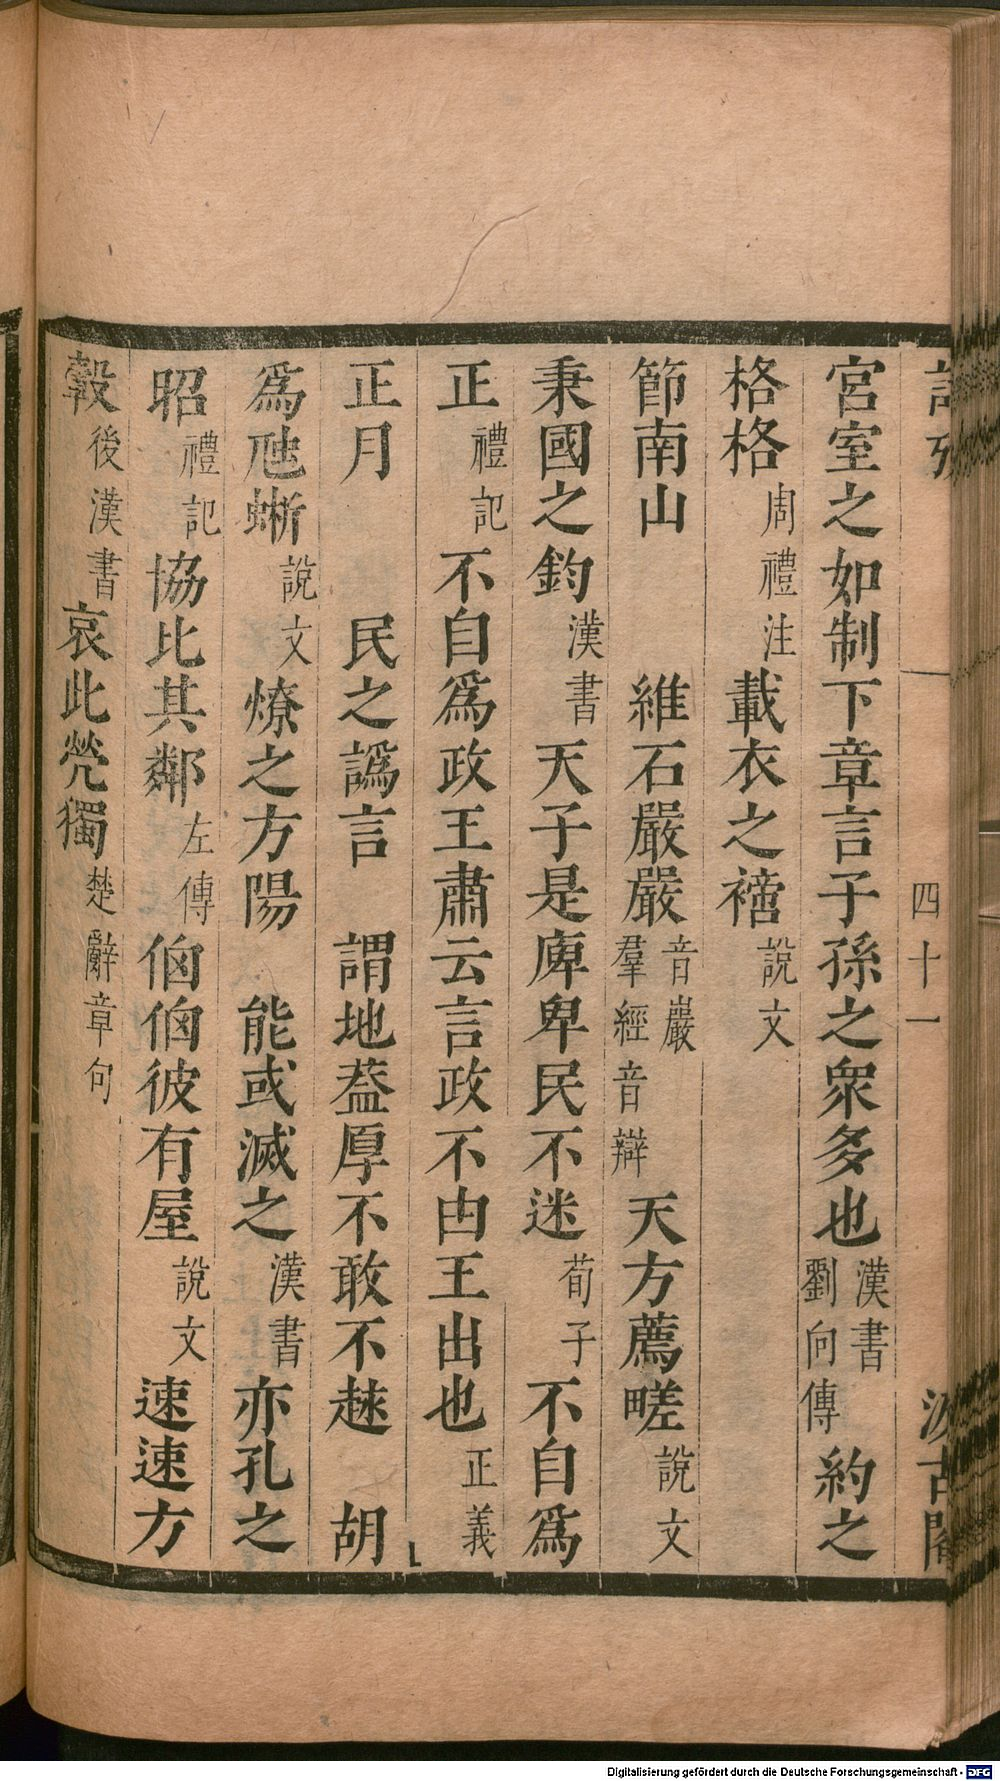 四十一
宮室之如制下章言子孫之衆多也漢書劉向傳約之
格格周禮注載衣之禇說文
節南山 維石嚴嚴音巖羣經音辯天方薦㽨說文
秉國之鈞漢書天子是庳卑民不迷荀子不自爲
正禮記不自爲政王肅云言政不由王出也正義
正月 民之譌言 謂地葢厚不敢不趚 胡
爲虺蜥說文燎之方陽 能或滅之漢書亦孔之
昭禮記協比其鄰左傳㑋㑋彼有屋說文速速方
穀後漢書哀此煢獨楚辭章句
Digitalisierung gefördert durch die Deutsche Forschungsgemeinschaft - DFG